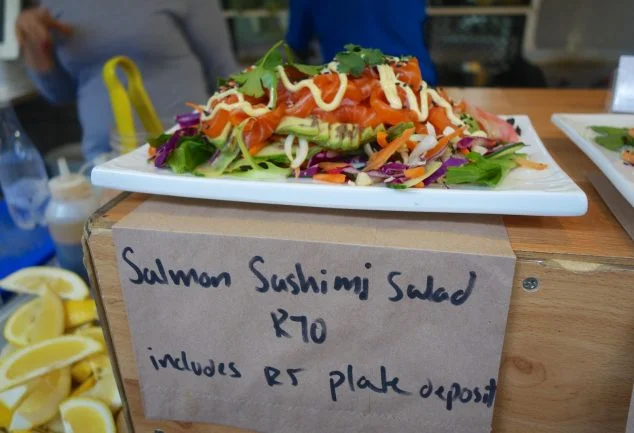 Salmon Sashimi Salad
R70
includes R5 plate deposit